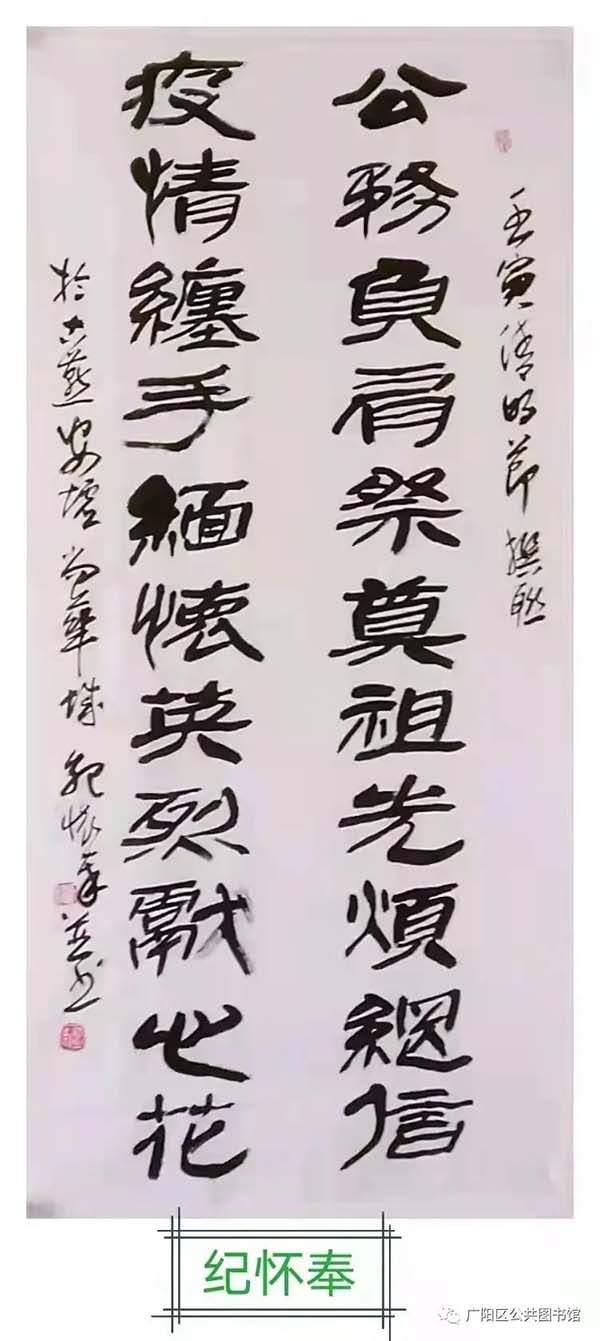 壬寅清明節撰联
公務負肩祭奠祖先煩網信
疫情纏手緬懷英烈獻心花
於古燕安墟尚華城 紀懷奉並书
纪怀奉
广阳区公共图书馆